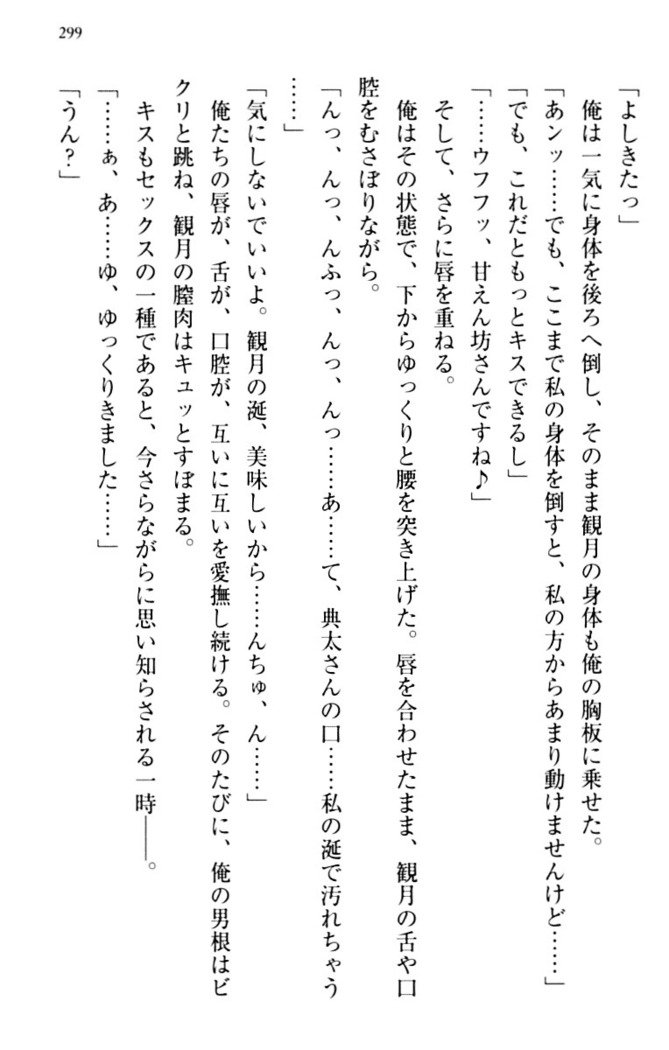 299
「よしきたっ」
俺は一気に身体を後ろへ倒し、そのまま観月の身体も俺の胸板に乗せた。
「あンッ……でも、ここまで私の身体を倒すと、私の方からあまり動けませんけど……」
「でも、これだともっとキスできるし」
「……ウフフッ、甘えん坊さんですね♪」
そして、さらに唇を重ねる。
俺はその状態で、下からゆっくりと腰を突き上げた。唇を合わせたまま、観月の舌や口
腔をむさぼりながら。
「んっ、んっ、んふっ、んっ、んっ……あ……て、典太さんの口……私の涎で汚れちゃう
……」
「気にしないでいいよ。観月の涎、美味しいから……んちゅ、ん……」
俺たちの唇が、舌が、口腔が、互いに互いを愛撫し続ける。そのたびに、俺の男根はビ
クリと跳ね、観月の膣肉はキュッとすぼまる。
キスもセックスの一種であると、今さらながらに思い知らされる一時――。
「……ぁ、あ……ゆ、ゆっくりきました……」
「うん？」